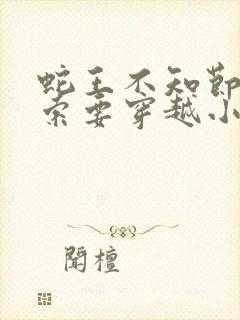 蛇王不知节
索要穿越小
闻檀